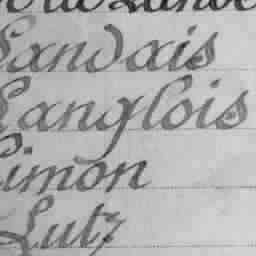 Landais
Langlois
Simon
Lutz